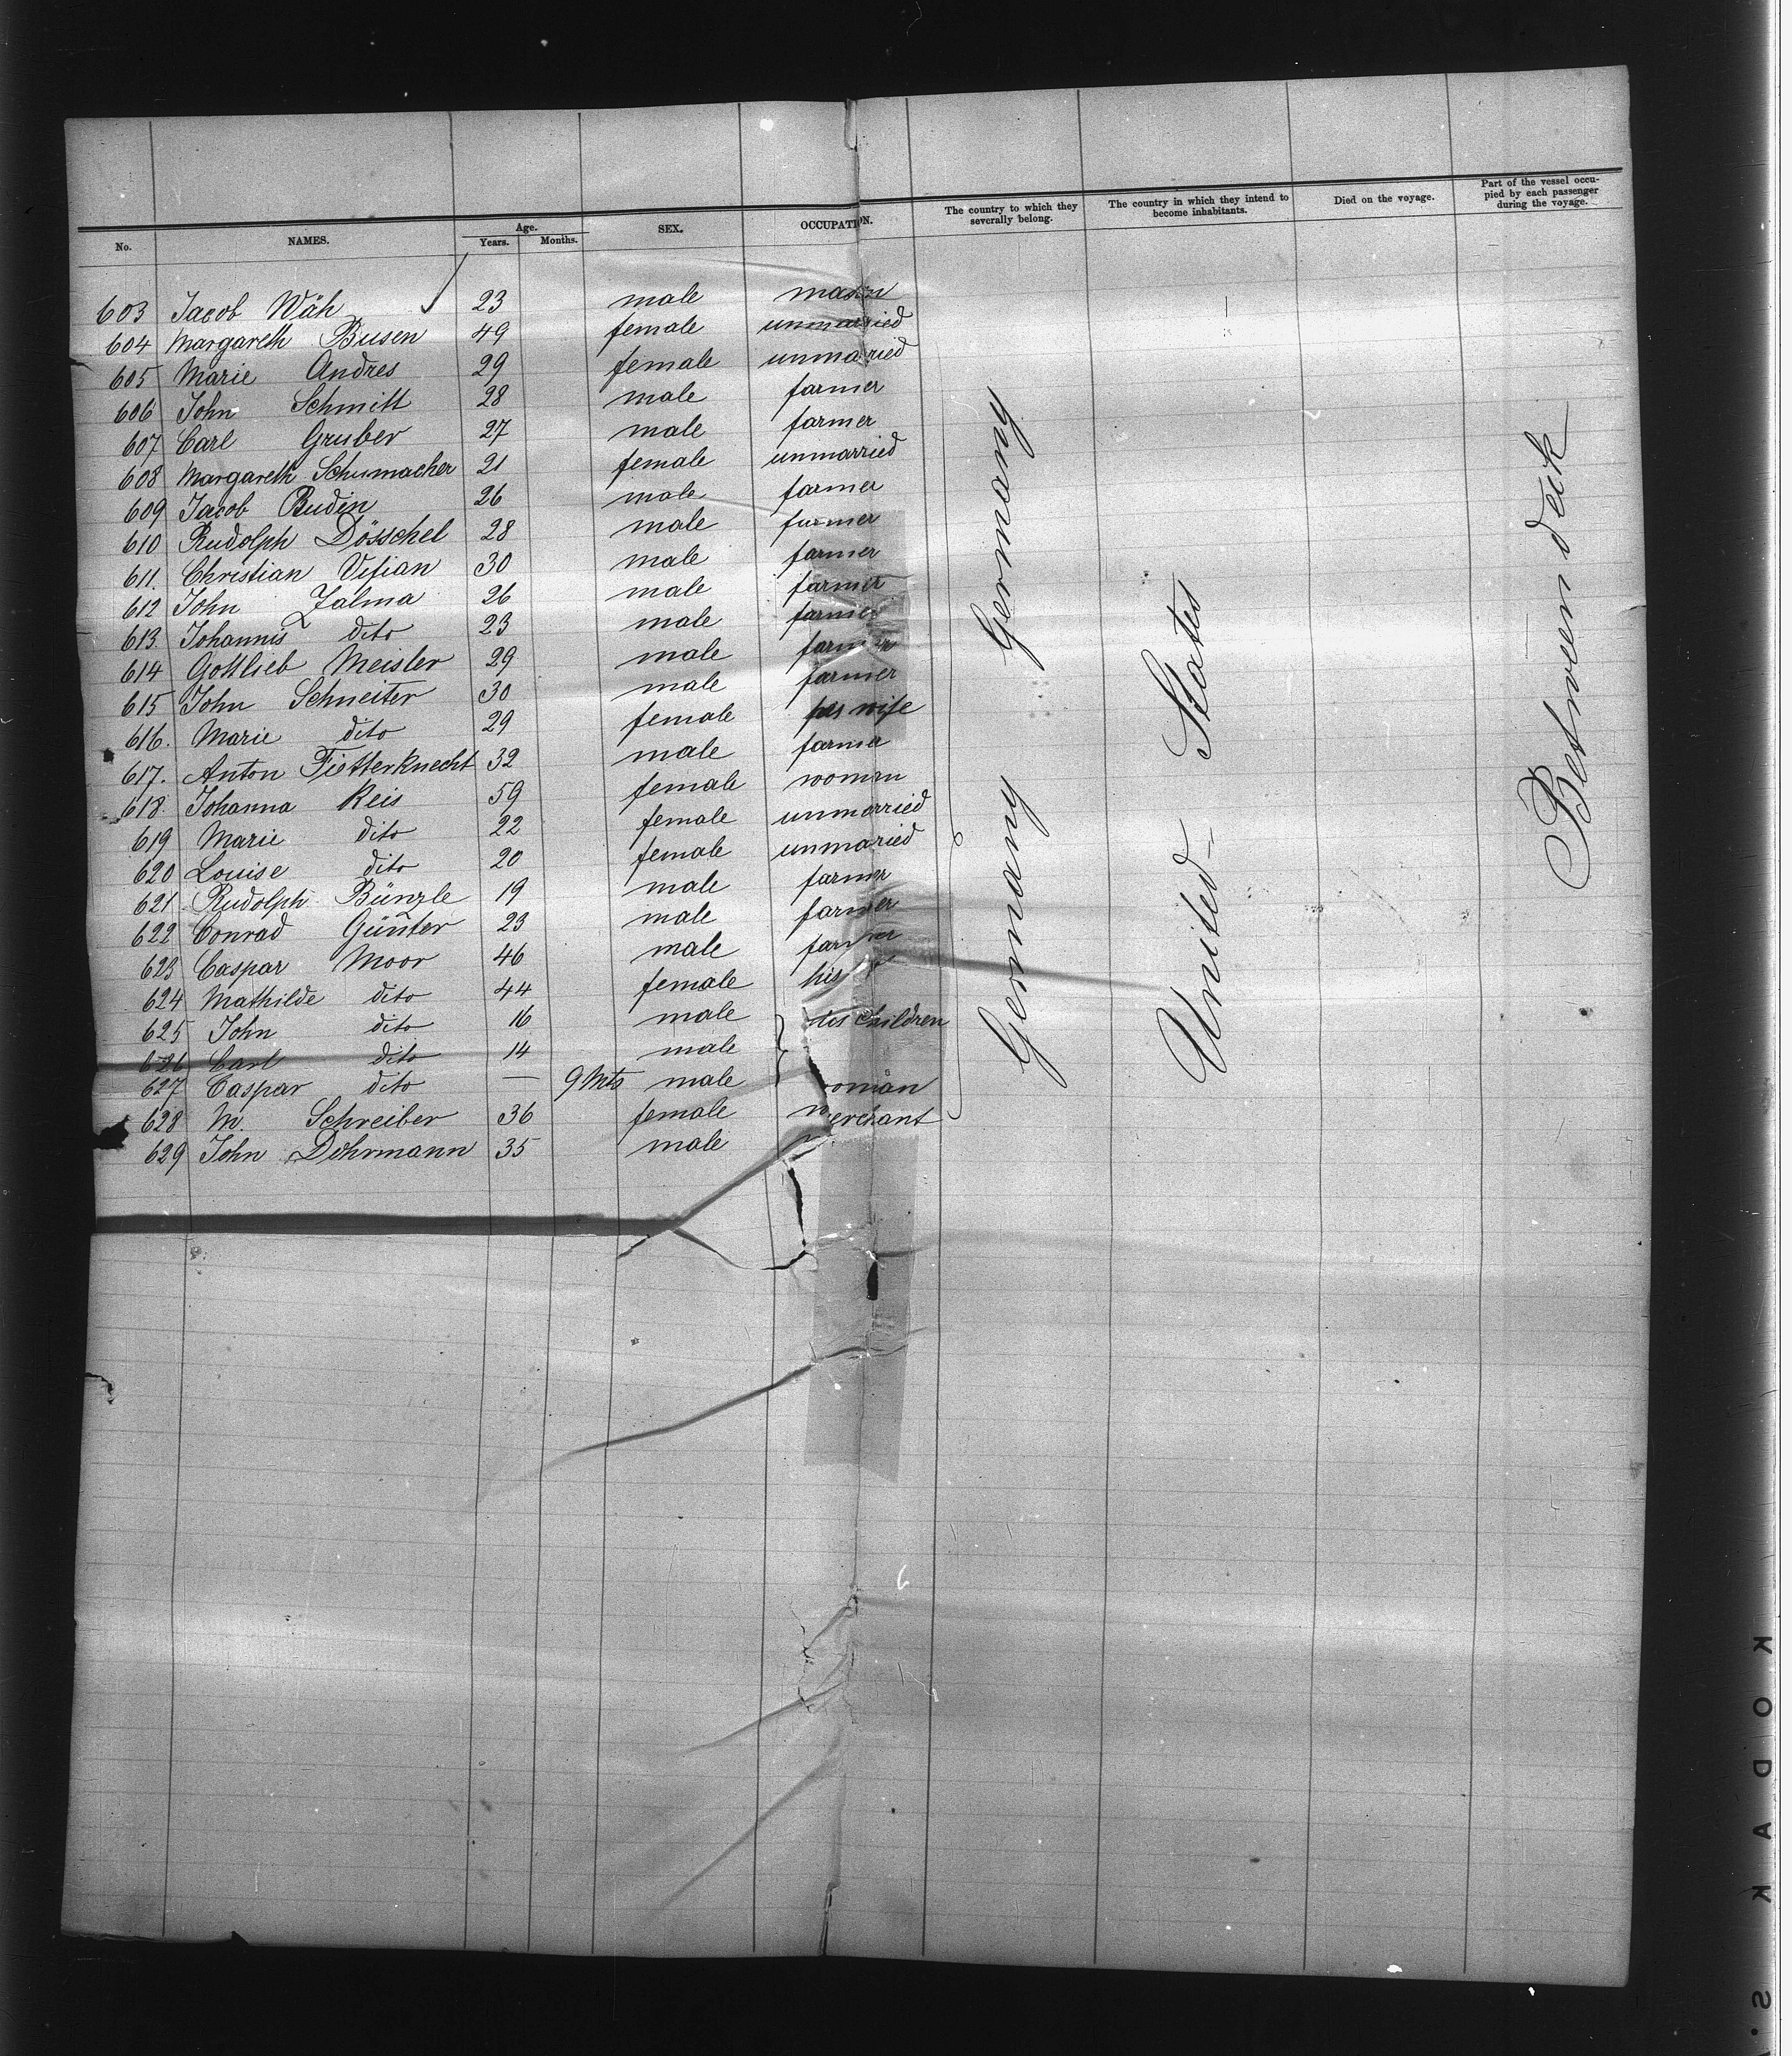 No. NAMES. Age. Years. Months. SEX. OCCUPATION. The country to which they severally belong. The country in which they intend to become inhabitants. Died on the voyage. Part of the vessel occupied by each passenger during the voyage.
603 Jacob Wäh 23 male mason
604 Margareth Busen 49 female unmarried
605 Marie Andres 29 female unmaried
606 John Schmitt 28 male farmer
607 Carl Gruber 27 male farmer
608 Margareth Schumacher 21 female unmarried
609 Jacob Budin 26 male farmer
610 Rudolph Dösschel 28 male farmer
611. Christian Vifian 30 male farmer
612 John Zalma 26 male farmer
613. Johannis dito 23 male farmer
614 Gottlieb Meister 29 male farmer
615 John Schneiter 30 male farmer
616. Marie dito 29 female his wife
617. Anton Fietterknecht 32 male farmer
618. Johanna Reis 59 female woman
619 Marie dito 22 female unmarried
620 Louise dito 20 female unmaried
621 Rudolph Bünzle 19 male farmer
622 Conrad Günter 23 male farmer
623 Caspar Moor 46 male farmer
624 Mathilde dito 44 female his
625 John dito 16 male
626 Carl dito 14 male children
627 Caspar dito — 9 Mts male
628 M. Schreiber 36 female woman
629 John Dohrmann 35 male merchant
Germany Germany
United States
Between deck
KODAK S.